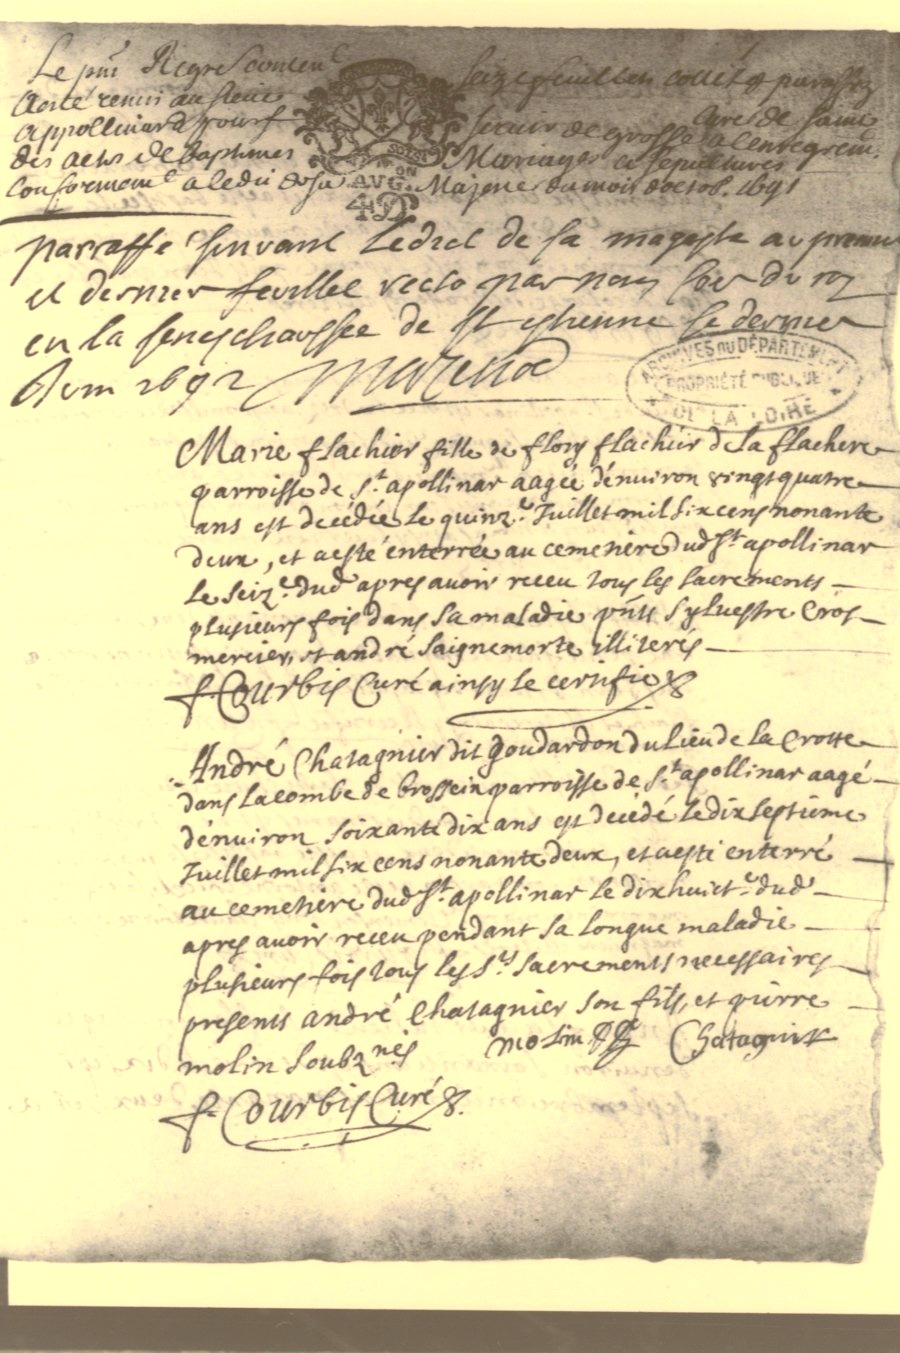 Le pnt Regre content seize feuillets cottés & paraffez
a esté remis au sieur curé de Saint
Appollinard pour servir de grosse a l'enregrem.
des actes de Baptemes Mariages et sepultures
conformemt a ledit de sa Majesté du mois doctob. 1691
AVG.ON
4 D
parraffé suivant Ledict de sa mageste au premier
et dernier feuillet recto par nous du roy
en la seneschaussee de st estienne le dernier
Juin 1692
ARCHIVES DU DÉPARTEMENT
PROPRIÉTÉ PUBLIQUE
DE LA LOIRE
Marie flachier fille de flory flachier de la flachere
parroisse de St. apollinar aagée d'environ vingt quatre
ans est decédée le quinze. Juillet mil six cens nonante
deux, et a esté enterrée au cemetiere dud St. apollinar
le seize. dud apres avoir receu tous les sacrements
plusieurs fois dans sa maladie pnts sylvestre Cros
mercier, et andré saignemorte illiterés
f. Courbis Curé ainsy le certifie
André Chatagnier dit goudardon du lieu de la Crotte
dans la combe de brossein parroisse de St. apollinar aagé
d'environ soixante dix ans est decédé le dix septieme
Juillet mil six cens nonante deux, et a esté enterré
au cemetiere dud St. apollinar le dix huicte. dud
apres avoir receu pendant sa longue maladie
plusieurs fois tous les Sts sacrements necessaires
presents andré Chatagnier son fils, et pierre
molin soubznés molin Chatagnier
f. Courbis Curé